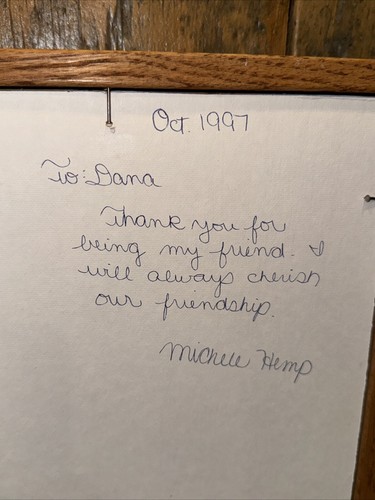 Oct. 1997
To: Dana
Thank you for
being my friend. I
will always cherish
our friendship.
Michele Hemp